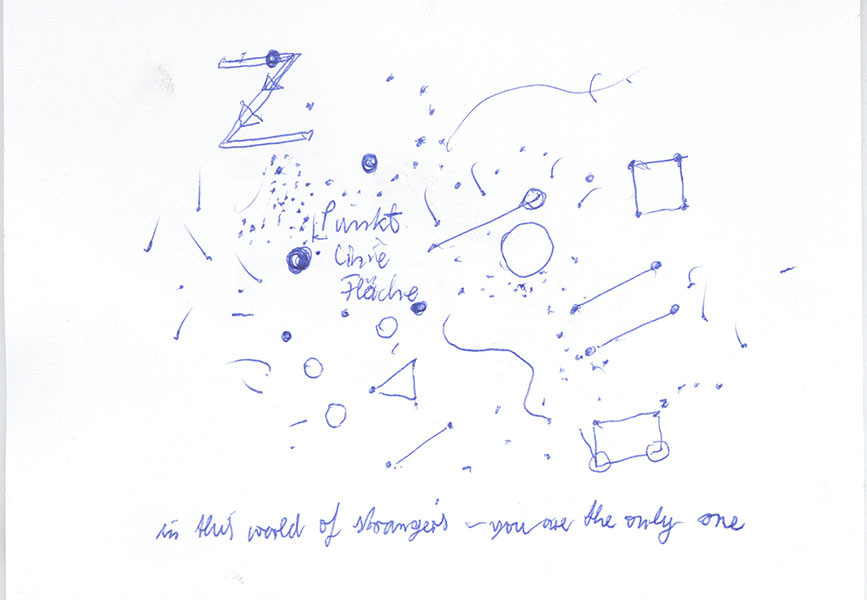 Z
Punkt
Linie
Fläche
in this world of stranger's – you are the only one